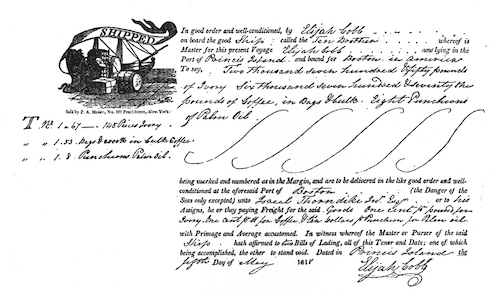 SHIPPED
Sold by P. A. Mesier, No. 107 Pearl-Street, New-York.
In good order and well-conditioned, by Elijah Cobb
on board the good Ship called the Ten Brothers whereof is
Master for this present Voyage Elijah Cobb now lying in the
Port of Princis Island and bound for Boston in america
To say, Two thousand seven hundred & fifty pounds
of Ivory Six thousand seven hundred & seventy the
pounds of Coffee, in Bags & bulk. Eight Puncheons
of Palm Oil
Nos. 1 a 67 — 148 Pieces Ivory
" " 1. 53. Bags & in bulk Coffee
" " 1. 8. Puncheons Palm Oil.
being marked and numbered as in the Margin, and are to be delivered in the like good order and well-
conditioned at the aforesaid Port of Boston (the Danger of the
Seas only excepted) unto Israel Thorndike Esqr or to his
Assigns, he or they paying Freight for the said Goods One Cent pr pound for
Ivory. One cent for Coffee & Ten dollars pr Puncheon for Palm oil
with Primage and Average accustomed. In witness whereof the Master or Purser of the said
Ship hath affirmed to two Bills of Lading, all of this Tenor and Date; one of which
being accomplished, the other to stand void. Dated in Princis Island
the fifth Day of May 181
Elijah Cobb